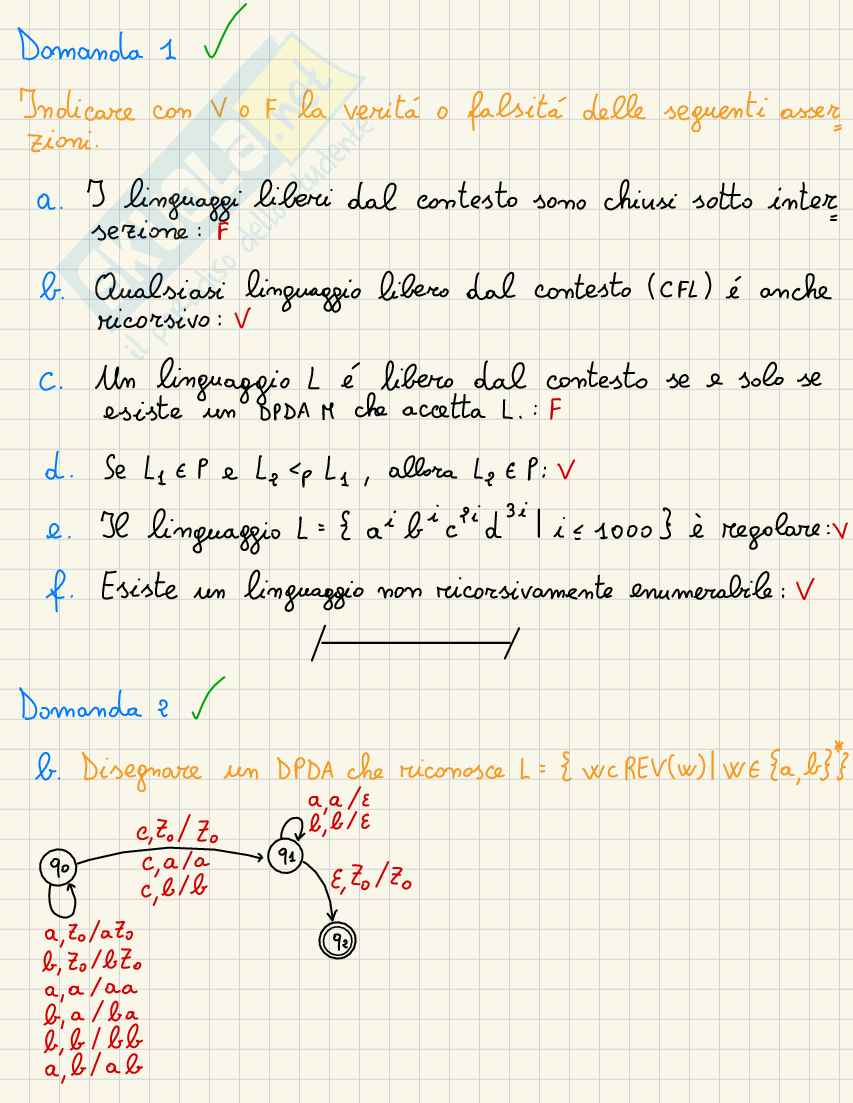 Domanda 1
Indicare con V o F la veritá o falsitá delle seguenti asser
zioni.
a. I linguaggi liberi dal contesto sono chiusi sotto inter
sezione: F
b. Qualsiasi linguaggio libero dal contesto (CFL) é anche
ricorsivo: V
c. Un linguaggio L é libero dal contesto se e solo se
esiste un DPDA M che accetta L.: F
d. Se L₁ ∈ P e L₂ <ₚ L₁, allora L₂ ∈ P: V
e. Il linguaggio L = { aⁱ bⁱ c²ⁱ d³ⁱ | i ≤ 1000 } è regolare: V
f. Esiste un linguaggio non ricorsivamente enumerabile: V
Domanda 2
b. Disegnare un DPDA che riconosce L = { wcREV(w) | w ∈ {a,b}*}
a,a/ε
b,b/ε
c,Z₀/Z₀
c,a/a
c,b/b
q₀
q₁
ε,Z₀/Z₀
q₂
a,Z₀/aZ₀
b,Z₀/bZ₀
a,a/aa
b,a/ba
b,b/bb
a,b/ab
skuola.net
il paradiso dello studente